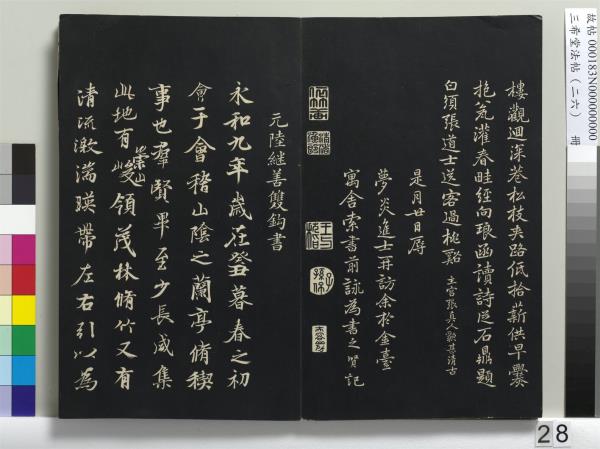 樓觀迴深巷松枝夾路低拾薪供早爨
抱瓮灌春畦經向琅函讀詩從石鼎題
白須張道士送客過桃谿 主宮張真人歌甚清古
是月廿日孱
夢炎進士再訪余於金臺
寓舍索書前詠為書之賢記
元陸繼善雙鉤書
永和九年歲在癸丑暮春之初
會于會稽山陰之蘭亭脩稧
事也羣賢畢至少長咸集
此地有崇山峻領茂林脩竹又有
清流激湍暎帶左右引以為
故帖 000183N000000000
三希堂法帖（二六） 冊
28